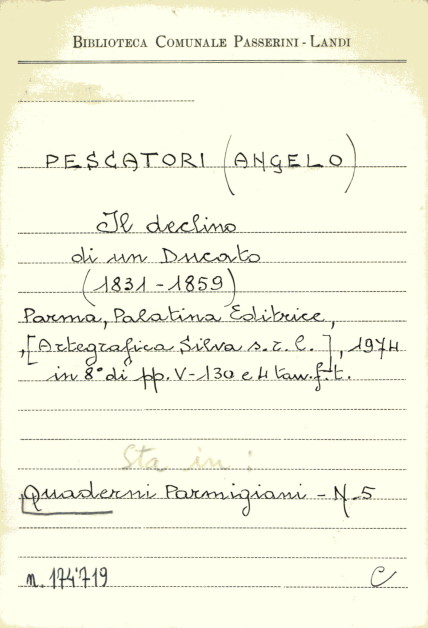 BIBLIOTECA COMUNALE PASSERINI - LANDI
PESCATORI (ANGELO)
Il declino
di un Ducato
(1831 - 1859)
Parma, Palatina Editrice,
,[Artegrafica Silva s.r.l.], 1974
in 8° di pp. V-130 e 4 tav. f.t.
Sta in :
Quaderni Parmigiani - N. 5
n. 174'719 C